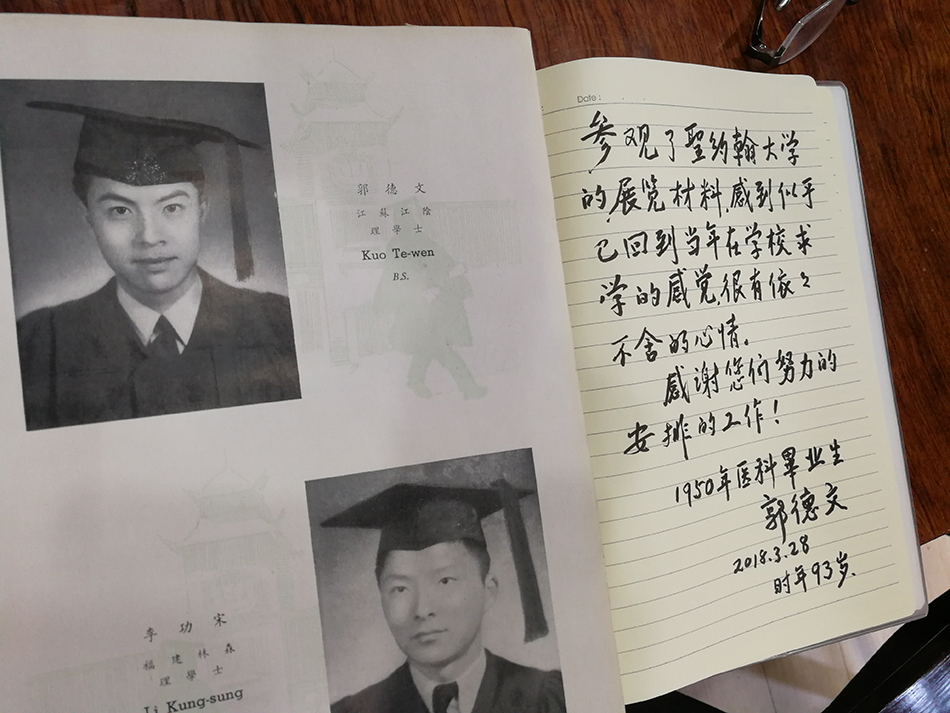 郭德文
江蘇江陰
理學士
Kuo Te-wen
B.S.
李功宋
福建林森
理學士
Li Kung-sung
Date:
参观了聖约翰大学
的展览材料,感到似乎
已回到当年在学校求
学的感觉,很有依々
不舍的心情。
感谢您们努力的
安排的工作!
1950年医科畢业生
郭德文
2018.3.28
时年93岁.